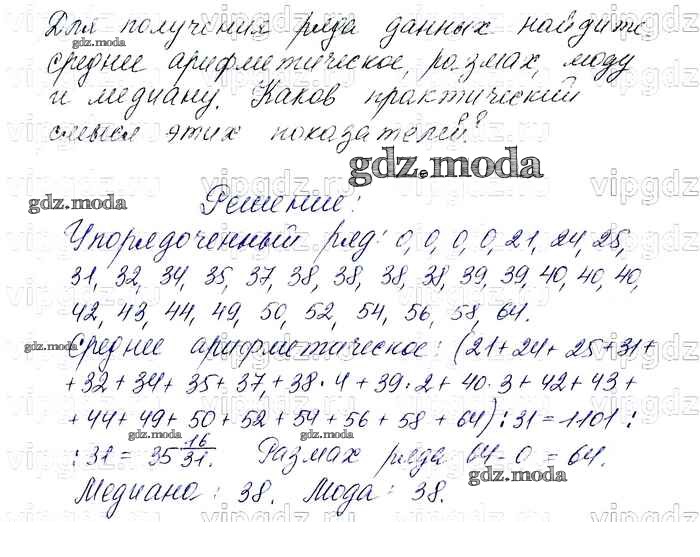 Для получения ряда данных найдите
gdz.moda
среднее арифметическое, размах, моду
и медиану. Каков практический
смысл этих показателей?
gdz.moda
gdz.moda
Решение:
Упорядоченный ряд: 0, 0, 0, 0, 21, 24, 25,
31, 32, 34, 35, 37, 38, 38, 38, 38, 39, 39, 40, 40, 40,
42, 43, 44, 49, 50, 52, 54, 56, 58, 64.
gdz.moda
Среднее арифметическое: (21+24+25+31+
+32+34+35+37+38·4+39·2+40·3+42+43+
+44+49+50+52+54+56+58+64):31=1101:
gdz.moda
gdz.moda
:31=35 16/31. Размах ряда 64-0=64.
gdz.moda
Медиана: 38. Мода: 38.